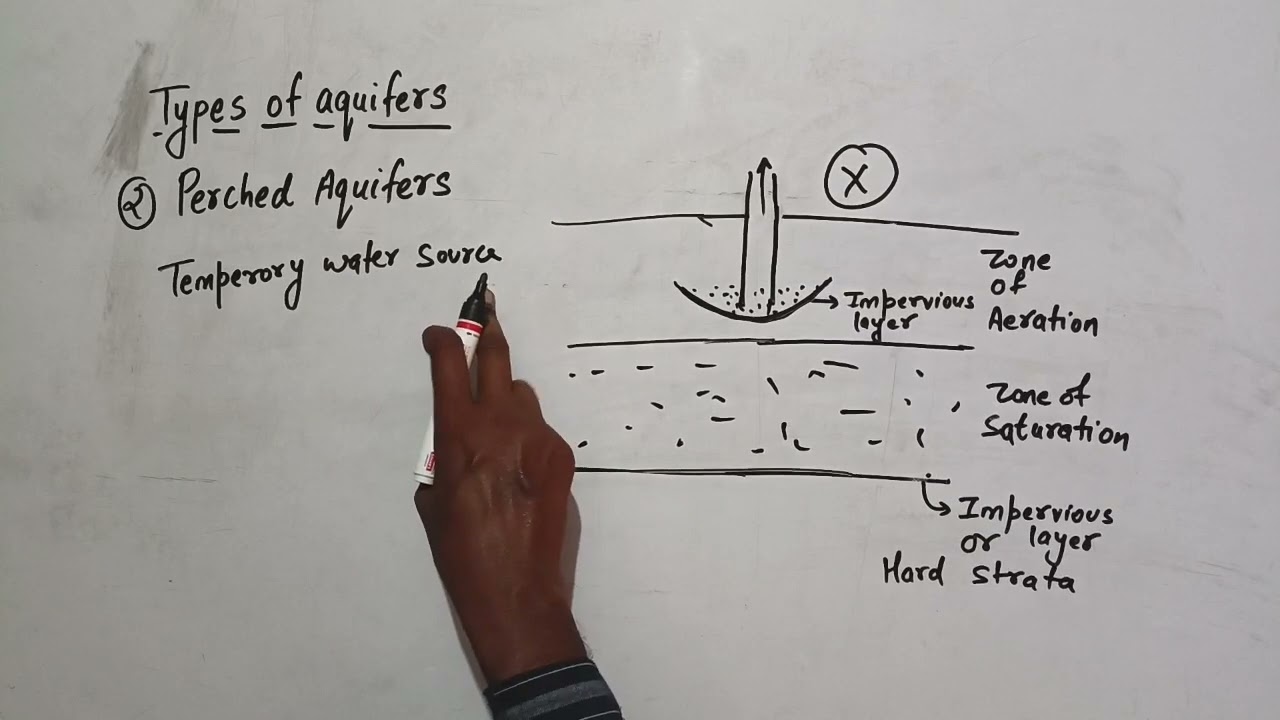 Types of aquifers
② Perched Aquifers
Temperory water source
X
Zone
of
Aeration
Impervious
layer
Zone of
Saturation
Impervious
or layer
Hard strata